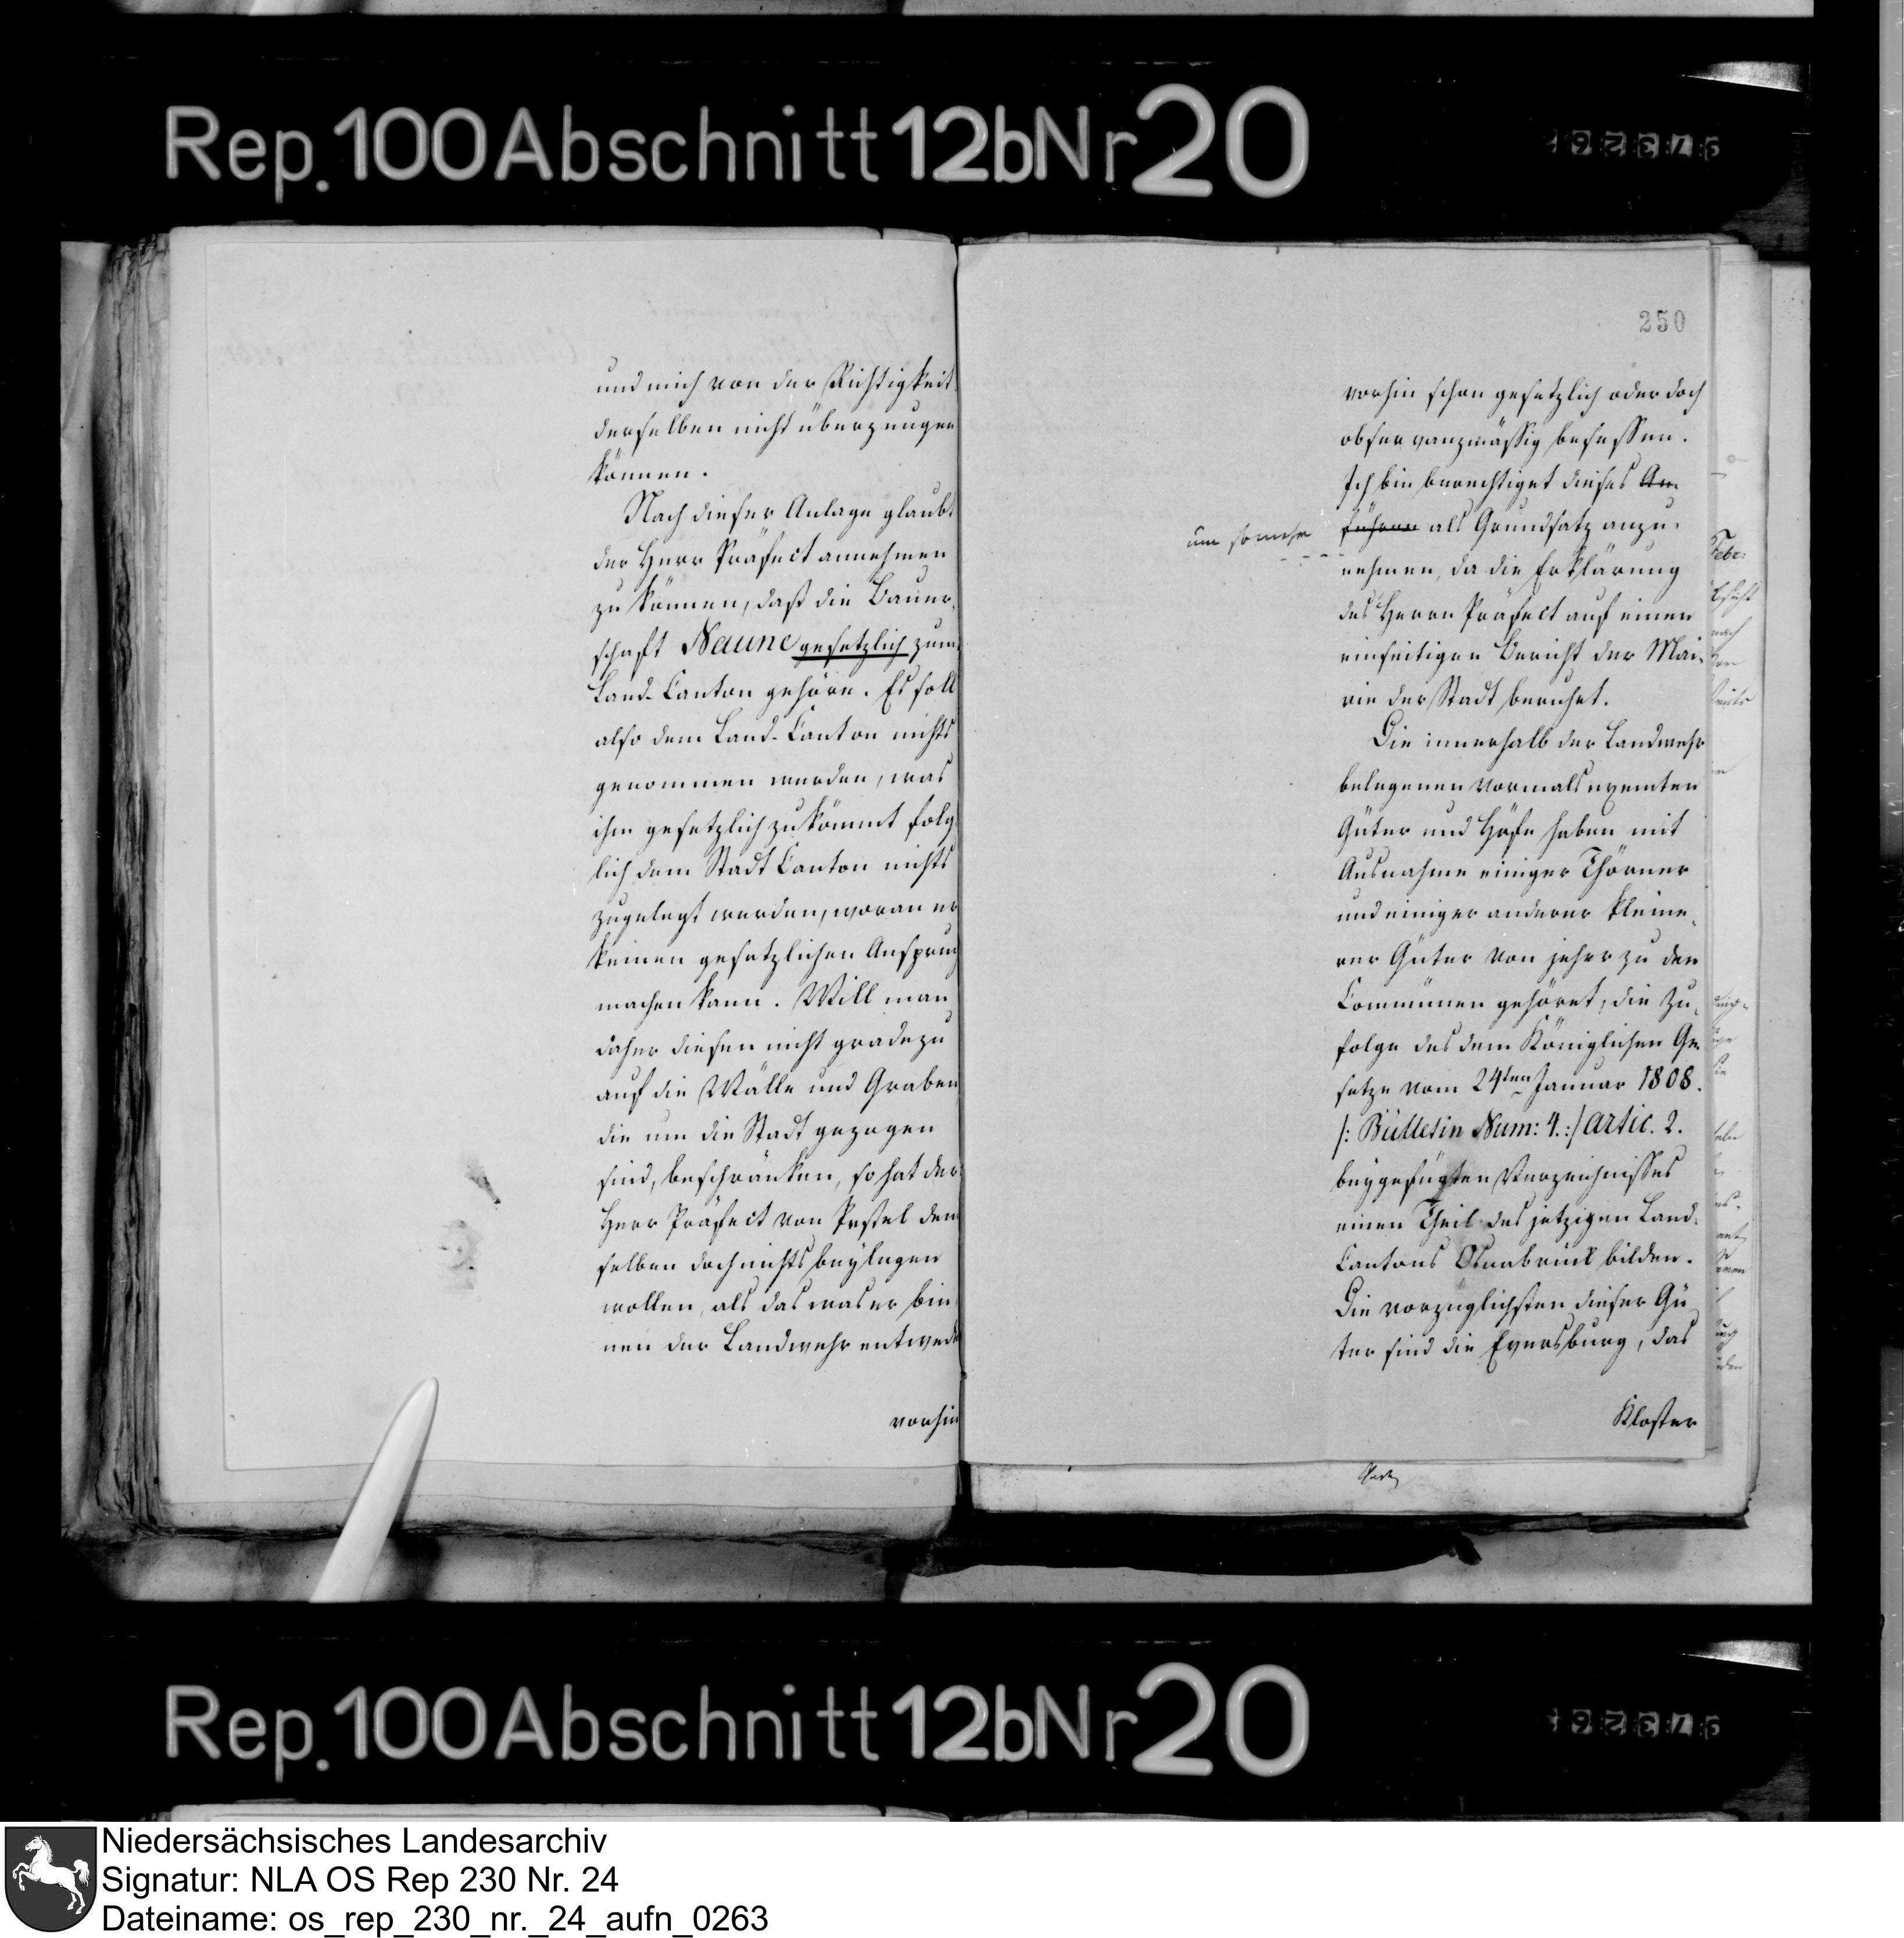 Rep. 100 Abschnitt 12b Nr 20
und mich von der Richtigkeit
derselben nicht überzeugen
können.
Nach dieser Anlage glaubt
der Herr Präfect annehmen
zu können, daß die Bauer-
schaft Naune gesetzlich zum
Land-Canton gehöre. Es soll
also dem Land-Canton nichts
genommen werden, was
ihm gesetzlich zukömmt folg
lich dem Stadt Canton nichts
zugelegt werden, woran er
keinen gesetzlichen Anspruch
machen kann. Will man
daher diesen nicht gradezu
auf die Wälle und Graben
die um die Stadt gezogen
sind, beschränken, so hat der
Herr Präfect von Pestel dem
selben doch nichts beylegen
wollen, als das was er bin
nen der Landwehr entwede
vorhin
250
vorhin schon gesetzlich oder doch
observanzmässig besessen.
Ich bin berechtiget dieses An-
führen als Grundsatz anzu-
um somehr
nehmen, da die Erklärung
des Herrn Präfect auf einen
einseitigen Bericht der Mai-
rie der Stadt beruhet.
Die innerhalb der Landwehr
belegenen vormals exemten
Güter und Höfe haben mit
Ausnahme einiger Thörner
und einiger anderer kleine-
rer Güter von jeher zu den
Communen gehöret, die zu-
folge des dem Königlichen Ge
setze vom 24ten Januar 1808.
/: Bülletin Num: 4. :/ Artic. 2.
beygefügten Verzeichnisses
einen Theil des jetzigen Land-
Cantons Osnabrück bilden.
Die vorzüglichsten dieser Gü
ter sind die Eversburg, das
Kloster
Febr:
Rep. 100 Abschnitt 12b Nr 20
Niedersächsisches Landesarchiv
Signatur: NLA OS Rep 230 Nr. 24
Dateiname: os_rep_230_nr._24_aufn_0263